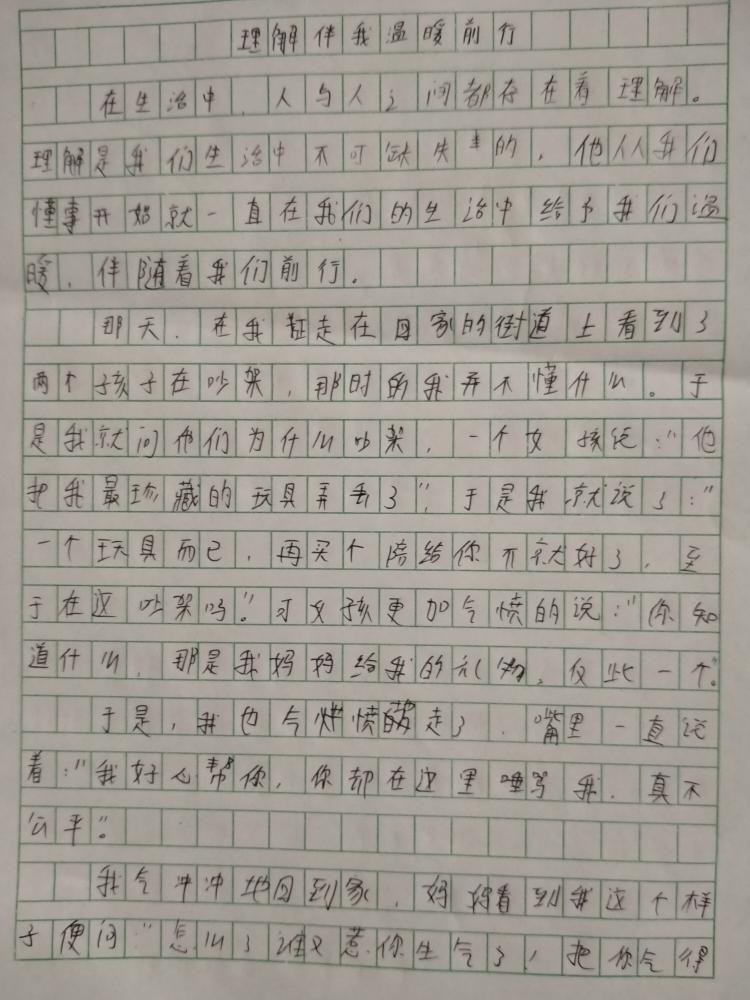 理解伴我温暖前行
在生活中，人与人之间都存在着理解。
理解是我们生活中不可缺失的，他从我们
懂事开始就一直在我们的生活中给予我们温
暖，伴随着我们前行。
那天，在我走在回家的街道上看到了
两个孩子在吵架，那时的我并不懂什么。于
是我就问他们为什么吵架，一个女孩说："他
把我最珍藏的玩具弄丢了"，于是我就说了："
一个玩具而已，再买个陪给你不就好了，至
于在这吵架吗"。可女孩更加气愤的说："你知
道什么，那是我妈妈给我的礼物，仅此一个"。
于是，我也气愤的走了，嘴里一直说
着："我好心帮你，你却在这里唾骂我，真不
公平"。
我气冲冲地回到家，妈妈看到我这个样
子便问："怎么了谁又惹你生气了，把你气得